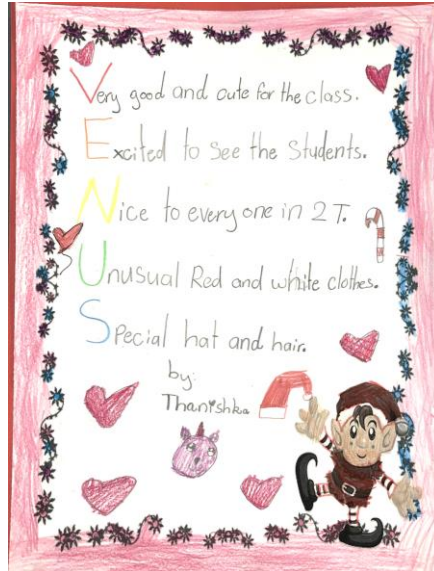 Very good and cute for the class.
Excited to see the Students.
Nice to everyone in 2 T.
Unusual Red and white clothes.
Special hat and hair.
by:
Thanishka